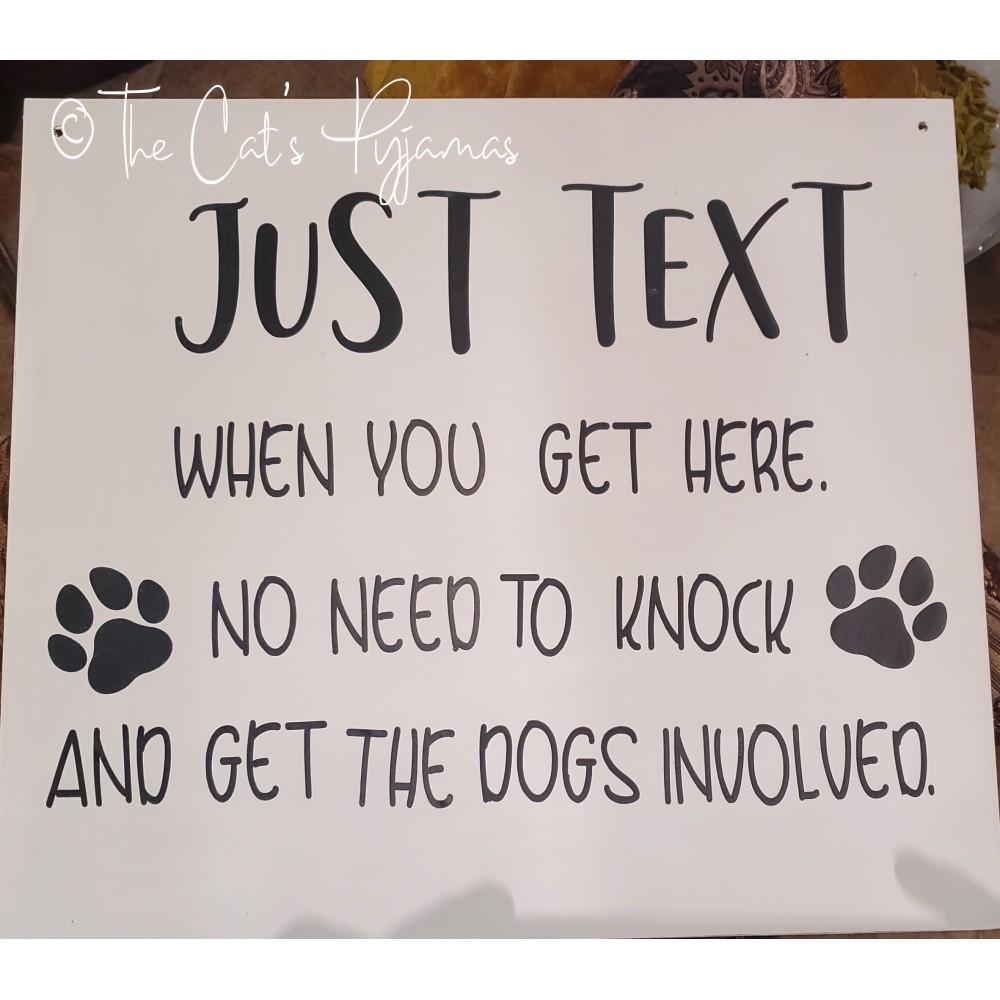 © The Cat's Pyjamas
JUST TEXT
WHEN YOU GET HERE.
NO NEED TO KNOCK
AND GET THE DOGS INVOLVED.